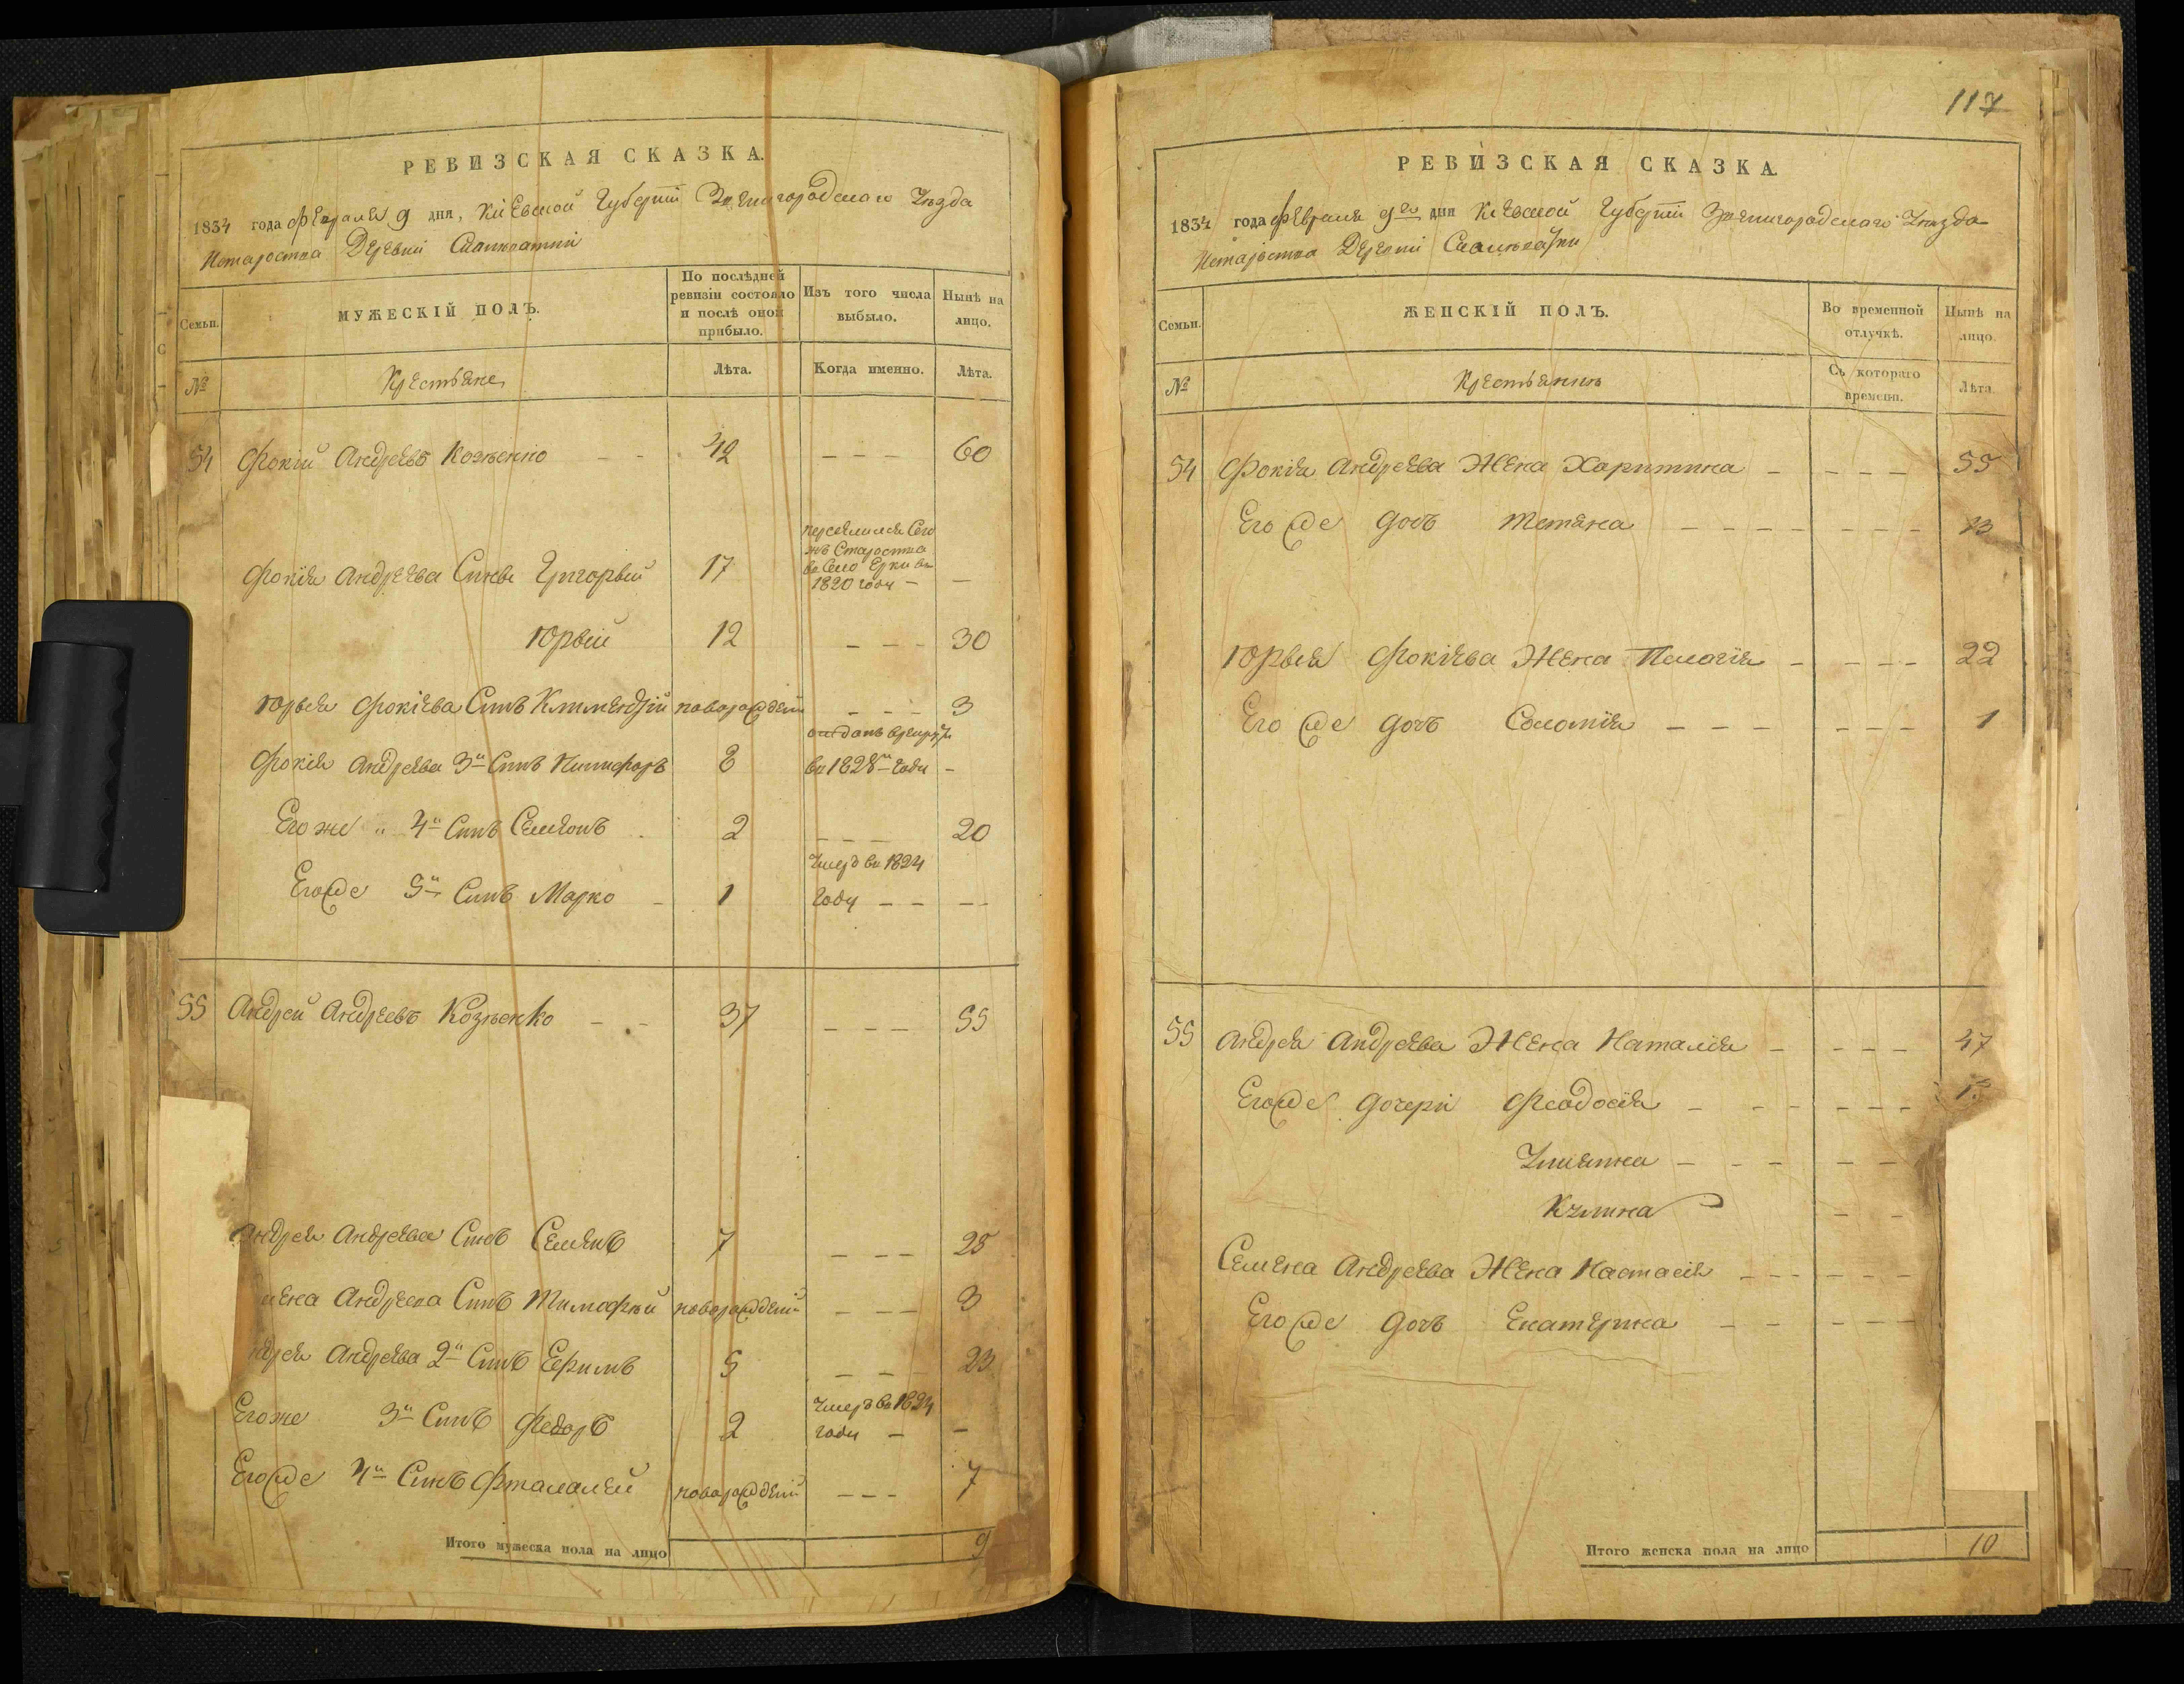 РЕВИЗСКАЯ СКАЗКА.
1834 года Февраля 9 дня, Кіевской Губерніи Звенигородскаго Уезда
Истароства Деревни
Семьи.
МУЖЕСКІЙ ПОЛЪ.
По послѣдней ревизіи состояло и послѣ оной прибыло.
Изъ того числа выбыло.
Нынѣ на лицо.
№
Крестьяне
Лѣта.
Когда именно.
Лѣта.
54 Фокій Андреевъ Козѣенко 42 - - - 60
переселился Сего
жъ Староства
во Село Ерки въ
Фокія Андреева Синъ Григорвій 17 1820 году - -
Юрвій 12 - - - 30
Юрвія Фокіева Синъ Климендій новорожденій - - - 3
отданъ врекруты
Фокія Андреева 3й Синъ Никифоръ 8 въ 1828м году -
Его же " 4й Синъ Семіонъ 2 - - - 20
Умеръ въ 1824
Егоже 5й Синъ Марко - 1 году - - - -
55 Андрей Андреевъ Козѣенко - - 37 - - - 55
Андрея Андреева Синъ Семенъ 7 - - - 25
мена Андреева Синъ Тимофѣй новорожденій - - - 3
дрея Андреева 2й Синъ Ефимъ 5 - - - 23
Умеръ въ 1824
Егоже 3й Синъ Федоръ 2 году - -
Егоже 4й Синъ Фталалей новорожденій - - - 7
Итого мужеска пола на лицо 9
117
РЕВИЗСКАЯ СКАЗКА.
1834 года Февраля 9го дня Кіевской Губерніи Звенигородскаго Уезда
Истароства Деревни
Семьи.
ЖЕНСКІЙ ПОЛЪ.
Во временной отлучкѣ.
Нынѣ на лицо.
№
Крестьянки
Съ котораго времени.
Лѣта.
54 Фокія Андреева Жена Харитина - - - - 55
Его же дочъ Тетяна - - - - - - - 13
Юрвія Фокіева Жена Пелагія - - - - 22
Его же дочъ Соломія - - - - - - 1
55 Андрея Андреева Жена Наталія - - - - 47
Егоже дочери Феодосія - - - - - -
Уляна - - - - -
Кулина - -
Семена Андреева Жена Настасія - - - - - -
Егоже дочъ Екатерина - - - - - -
Итого женска пола на лицо 10